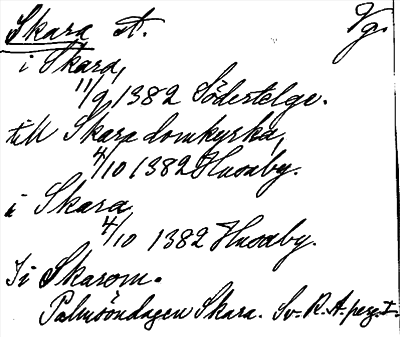 Skara st. Vg.
i Skara,
11/9 1382 Södertelge.
till Skara domkyrka,
4/10 1382 Husaby.
i Skara,
4/10 1382 Husaby.
I i Skarom.
Palmsöndagen Skara. Sv. R. A. perg. I.